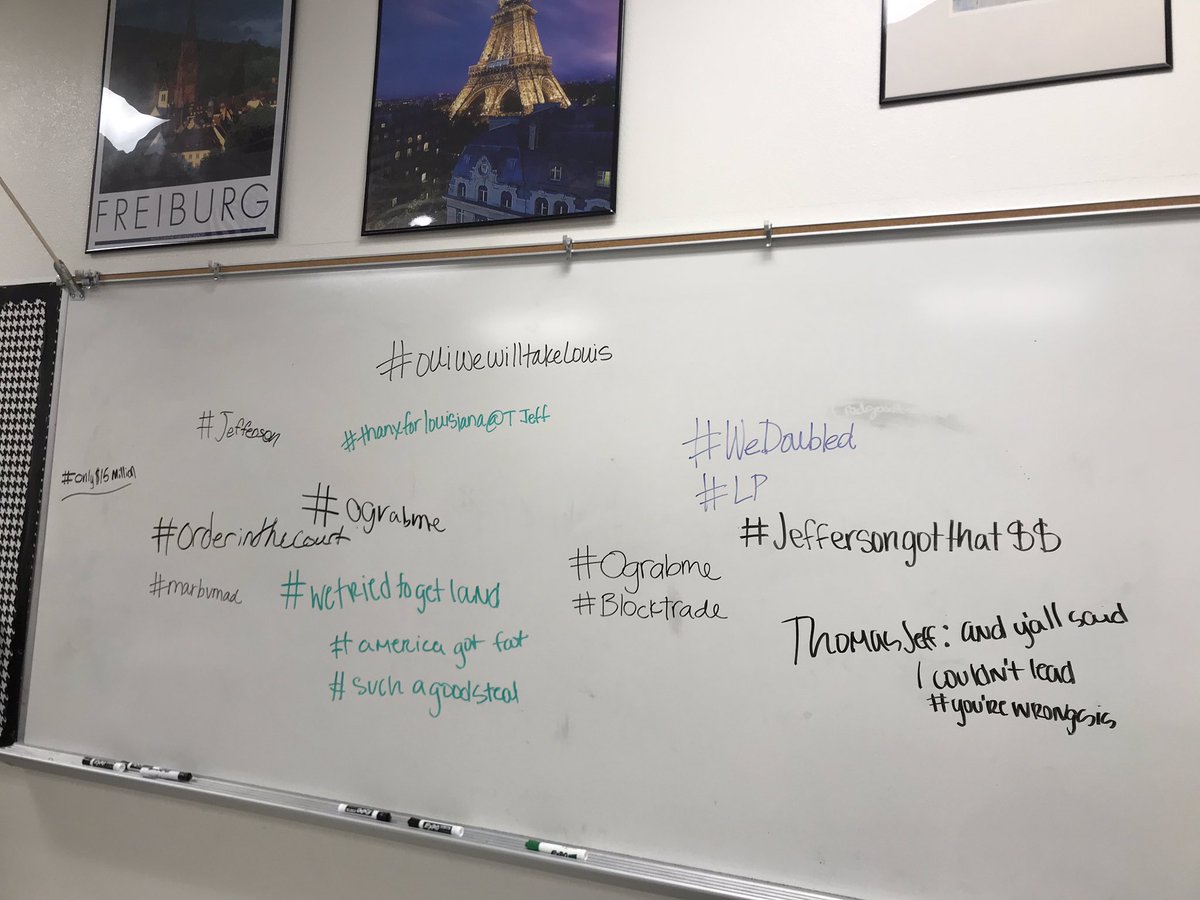 FREIBURG
#ouiwewilltakelouis
#Jefferson
#thanxforlouisiana@TJeff
#WeDoubled
#LP
#only$15Million
#ograbme
#orderinthecourt
#Jeffersongotthat$$
#marbvmad
#wetriedtogetland
#Ograbme
#Blocktrade
#america got fat
#such a goodsteal
Thomas Jeff: and y'all said
I couldn't lead
#you'rewrongsis
EXPO